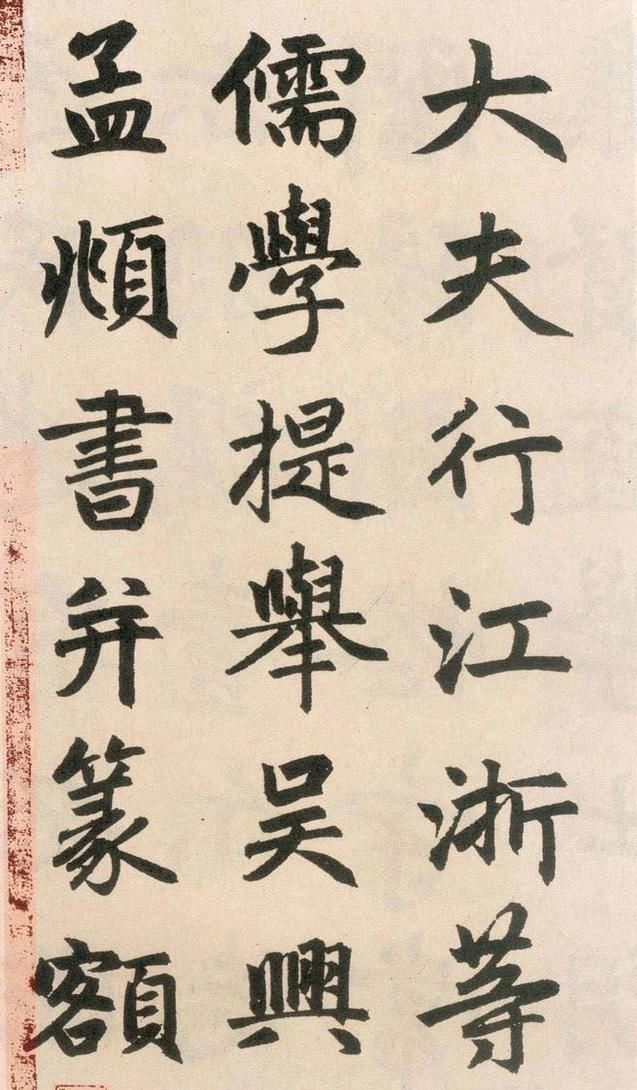 大夫行江浙等
儒學提舉吴興
孟頫書并篆額